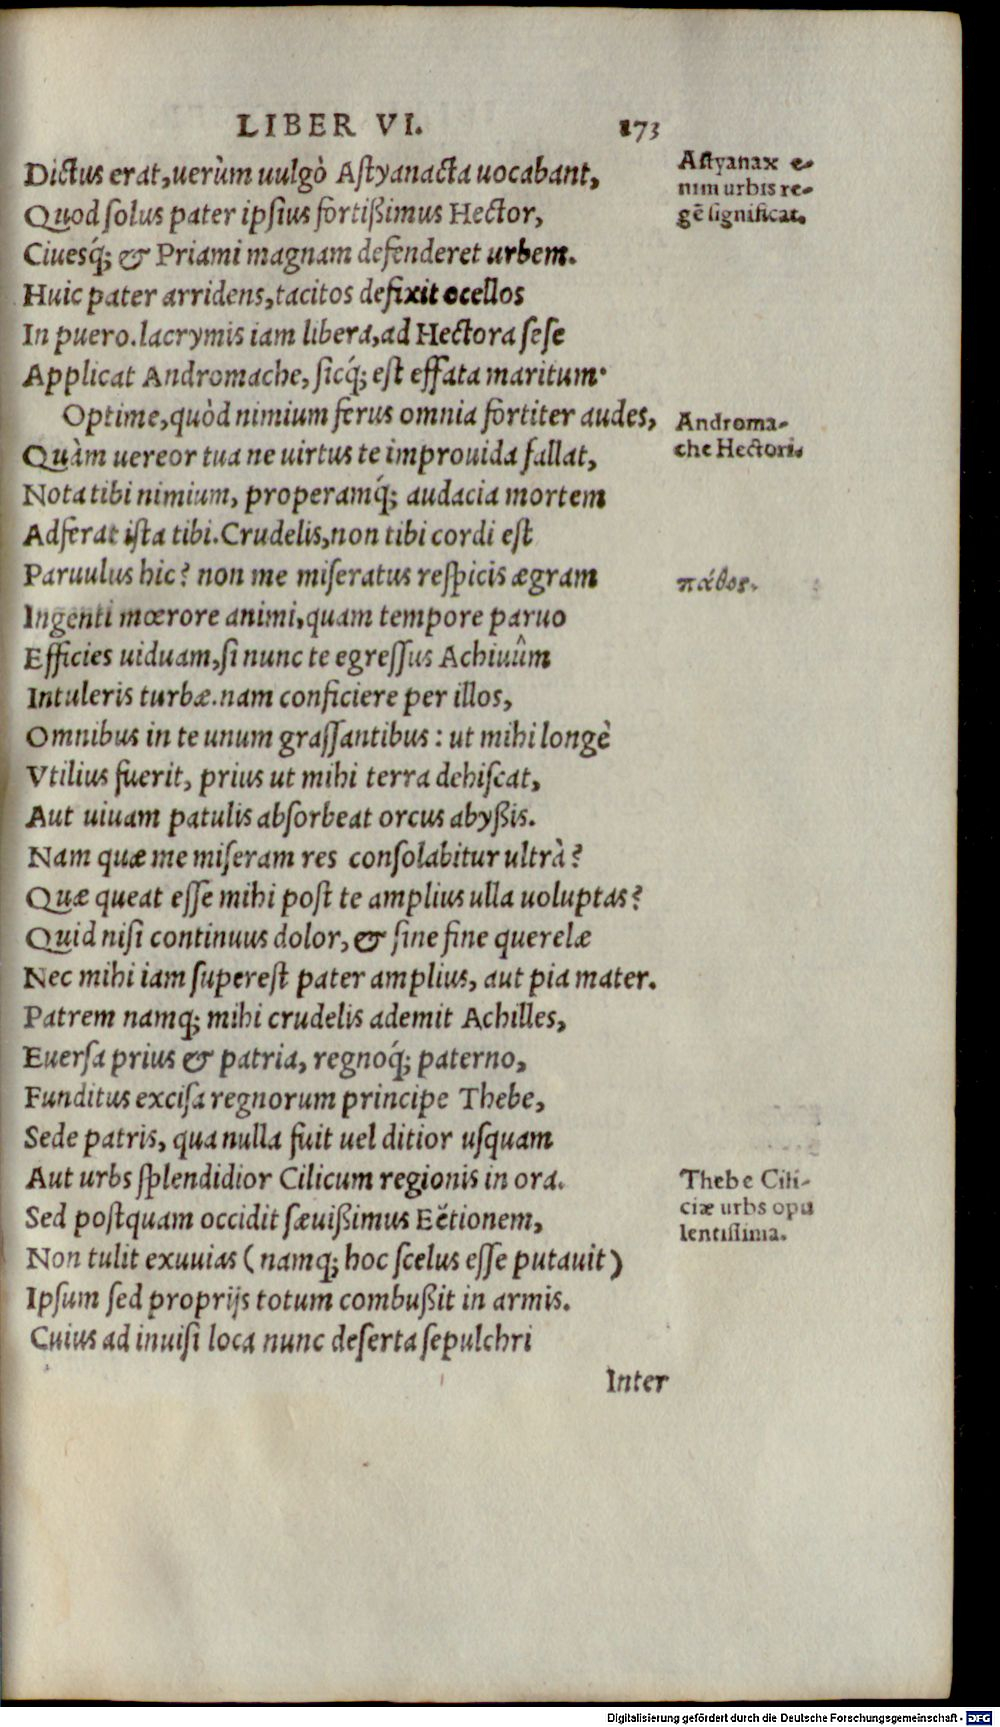 LIBER VI. 173
Dictus erat, uerùm uulgò Astyanacta uocabant,
Astyanax e-
nim urbis re-
gē significat.
Quod solus pater ipsius fortißimus Hector,
Ciuesq́; & Priami magnam defenderet urbem.
Huic pater arridens, tacitos defixit ocellos
In puero. lacrymis iam libera, ad Hectora sese
Applicat Andromache, sicq́; est effata maritum.
Optime, quòd nimium ferus omnia fortiter audes,
Androma-
che Hectori.
Quàm uereor tua ne uirtus te improuida fallat,
Nota tibi nimium, properamq́; audacia mortem
Adferat ista tibi. Crudelis, non tibi cordi est
Paruulus hic? non me miseratus respicis ægram
πάθος.
Ingenti mœrore animi, quam tempore paruo
Efficies uiduam, si nunc te egressus Achiuûm
Intuleris turbæ. nam conficiere per illos,
Omnibus in te unum grassantibus: ut mihi longè
Vtilius fuerit, prius ut mihi terra dehiscat,
Aut uiuam patulis absorbeat orcus abyßis.
Nam quæ me miseram res consolabitur ultrà?
Quæ queat esse mihi post te amplius ulla uoluptas?
Quid nisi continuus dolor, & sine fine querelæ
Nec mihi iam superest pater amplius, aut pia mater.
Patrem namq; mihi crudelis ademit Achilles,
Euersa prius & patria, regnoq́; paterno,
Funditus excisa regnorum principe Thebe,
Sede patris, qua nulla fuit uel ditior usquam
Aut urbs splendidior Cilicum regionis in ora.
Thebe Cili-
ciæ urbs opu
lentissima.
Sed postquam occidit sæuißimus Eëtionem,
Non tulit exuuias (namq; hoc scelus esse putauit)
Ipsum sed proprijs totum combußit in armis.
Cuius ad inuisi loca nunc deserta sepulchri
Inter
Digitalisierung gefördert durch die Deutsche Forschungsgemeinschaft - DFG